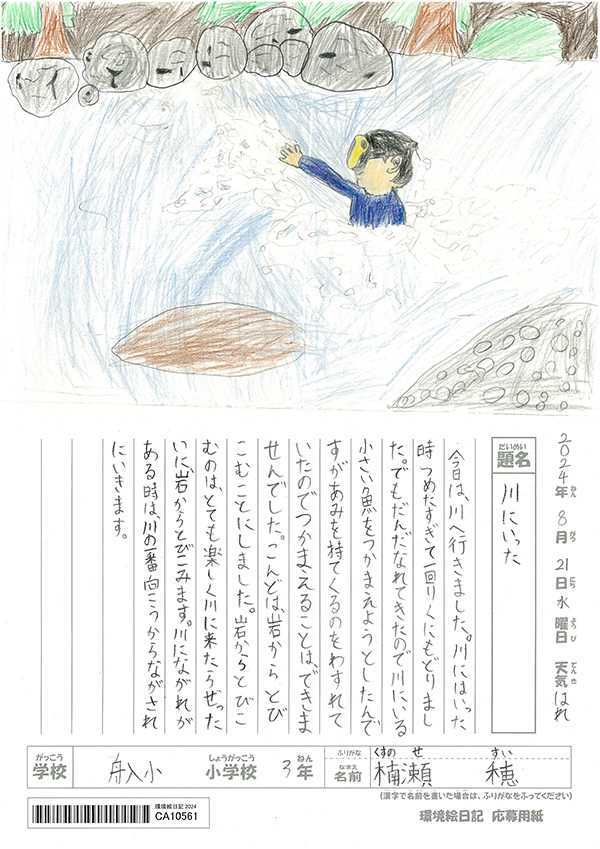 2024年ねん 8月がつ 21日にち 水曜日ようび 天気てんき はれ
題名だいめい 川にいった
今日は、川へ行きました。川にはいった
時つめたすぎて一回りくにもどりまし
た。でもだんだなれてきたので川にいる
小さい魚をつかまえようとしたんで
すがあみを持てくるのをわすれて
いたのでつかまえることは、できま
せんでした。こんどは、岩からとび
こむことにしました。岩からとびこ
むのは、とても楽しく川に来たらぜった
いに岩からとびこみます。川にながれが
ある時は、川の一番向こうからながされ
にいきます。
がっこう しょうがっこう ねん ふりがな くすのせ すい
学校 舟入小 小学校 3年 なまえ 名前 楠瀬 穂
(漢字で名前を書いた場合は、ふりがなをふってください)
環境絵日記 2024
CA10561
環境絵日記 応募用紙